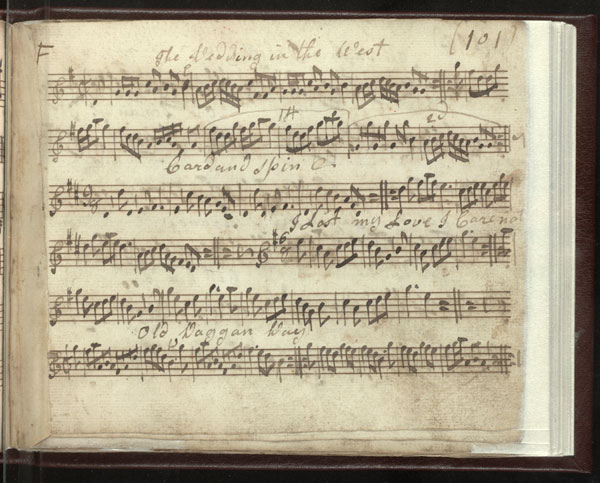 F
The Wedding in the West
(101)
1st
2d
Card and Spin
I Lost my Love I Care not
Old